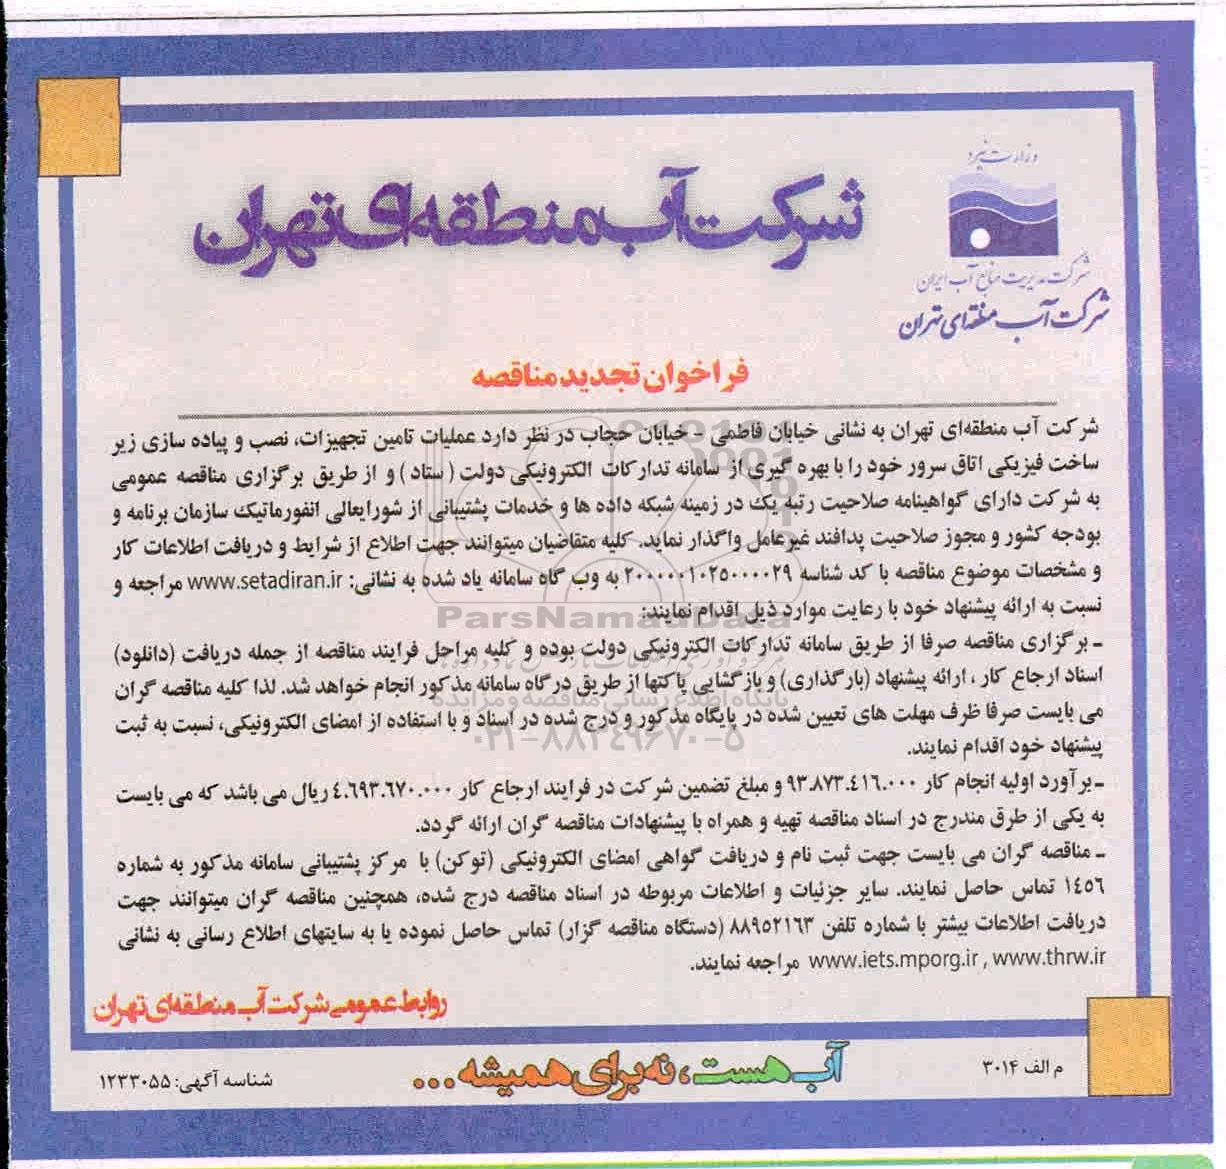 وزارت نیرو
شرکت مدیریت منابع آب ایران
شرکت آب منطقه‌ای تهران
شرکت آب منطقه‌ای تهران
فراخوان تجدید مناقصه
شرکت آب منطقه‌ای تهران به نشانی خیابان فاطمی - خیابان حجاب در نظر دارد عملیات تامین تجهیزات، نصب و پیاده سازی زیر
ساخت فیزیکی اتاق سرور خود را با بهره گیری از سامانه تدارکات الکترونیکی دولت (ستاد) و از طریق برگزاری مناقصه عمومی
به شرکت دارای گواهینامه صلاحیت رتبه یک در زمینه شبکه داده ها و خدمات پشتیبانی از شورایعالی انفورماتیک سازمان برنامه و
بودجه کشور و مجوز صلاحیت پدافند غیرعامل واگذار نماید. کلیه متقاضیان میتوانند جهت اطلاع از شرایط و دریافت اطلاعات کار
و مشخصات موضوع مناقصه با کد شناسه ۲۰۰۰۰۰۱۰۲۵۰۰۰۰۲۹ به وب گاه سامانه یاد شده به نشانی: www.setadiran.ir مراجعه و
نسبت به ارائه پیشنهاد خود با رعایت موارد ذیل اقدام نمایند:
ـ برگزاری مناقصه صرفا از طریق سامانه تدارکات الکترونیکی دولت بوده و کلیه مراحل فرایند مناقصه از جمله دریافت (دانلود)
اسناد ارجاع کار ، ارائه پیشنهاد (بارگذاری) و بازگشایی پاکتها از طریق درگاه سامانه مذکور انجام خواهد شد. لذا کلیه مناقصه گران
می بایست صرفا ظرف مهلت های تعیین شده در پایگاه مذکور و درج شده در اسناد و با استفاده از امضای الکترونیکی، نسبت به ثبت
پیشنهاد خود اقدام نمایند.
ـ برآورد اولیه انجام کار ۹۳.۸۷۳.٤۱٦.۰۰۰ و مبلغ تضمین شرکت در فرایند ارجاع کار ٤.٦۹۳.٦۷۰.۰۰۰ ریال می باشد که می بایست
به یکی از طرق مندرج در اسناد مناقصه تهیه و همراه با پیشنهادات مناقصه گران ارائه گردد.
ـ مناقصه گران می بایست جهت ثبت نام و دریافت گواهی امضای الکترونیکی (توکن) با مرکز پشتیبانی سامانه مذکور به شماره
۱٤٥٦ تماس حاصل نمایند. سایر جزئیات و اطلاعات مربوطه در اسناد مناقصه درج شده، همچنین مناقصه گران میتوانند جهت
دریافت اطلاعات بیشتر با شماره تلفن ۸۸۹٥۲۱٦۳ (دستگاه مناقصه گزار) تماس حاصل نموده یا به سایتهای اطلاع رسانی به نشانی
www.iets.mporg.ir , www.thrw.ir مراجعه نمایند.
روابط عمومی شرکت آب منطقه‌ای تهران
م الف ۳۰۱۴
آب هست، نه برای همیشه ...
شناسه آگهی: ۱۲۳۳۰۵۵
ParsNamadData
پایگاه اطلاع رسانی مناقصه و مزایده
۰۲۱-۸۸۳۴۹۶۷۰-۵